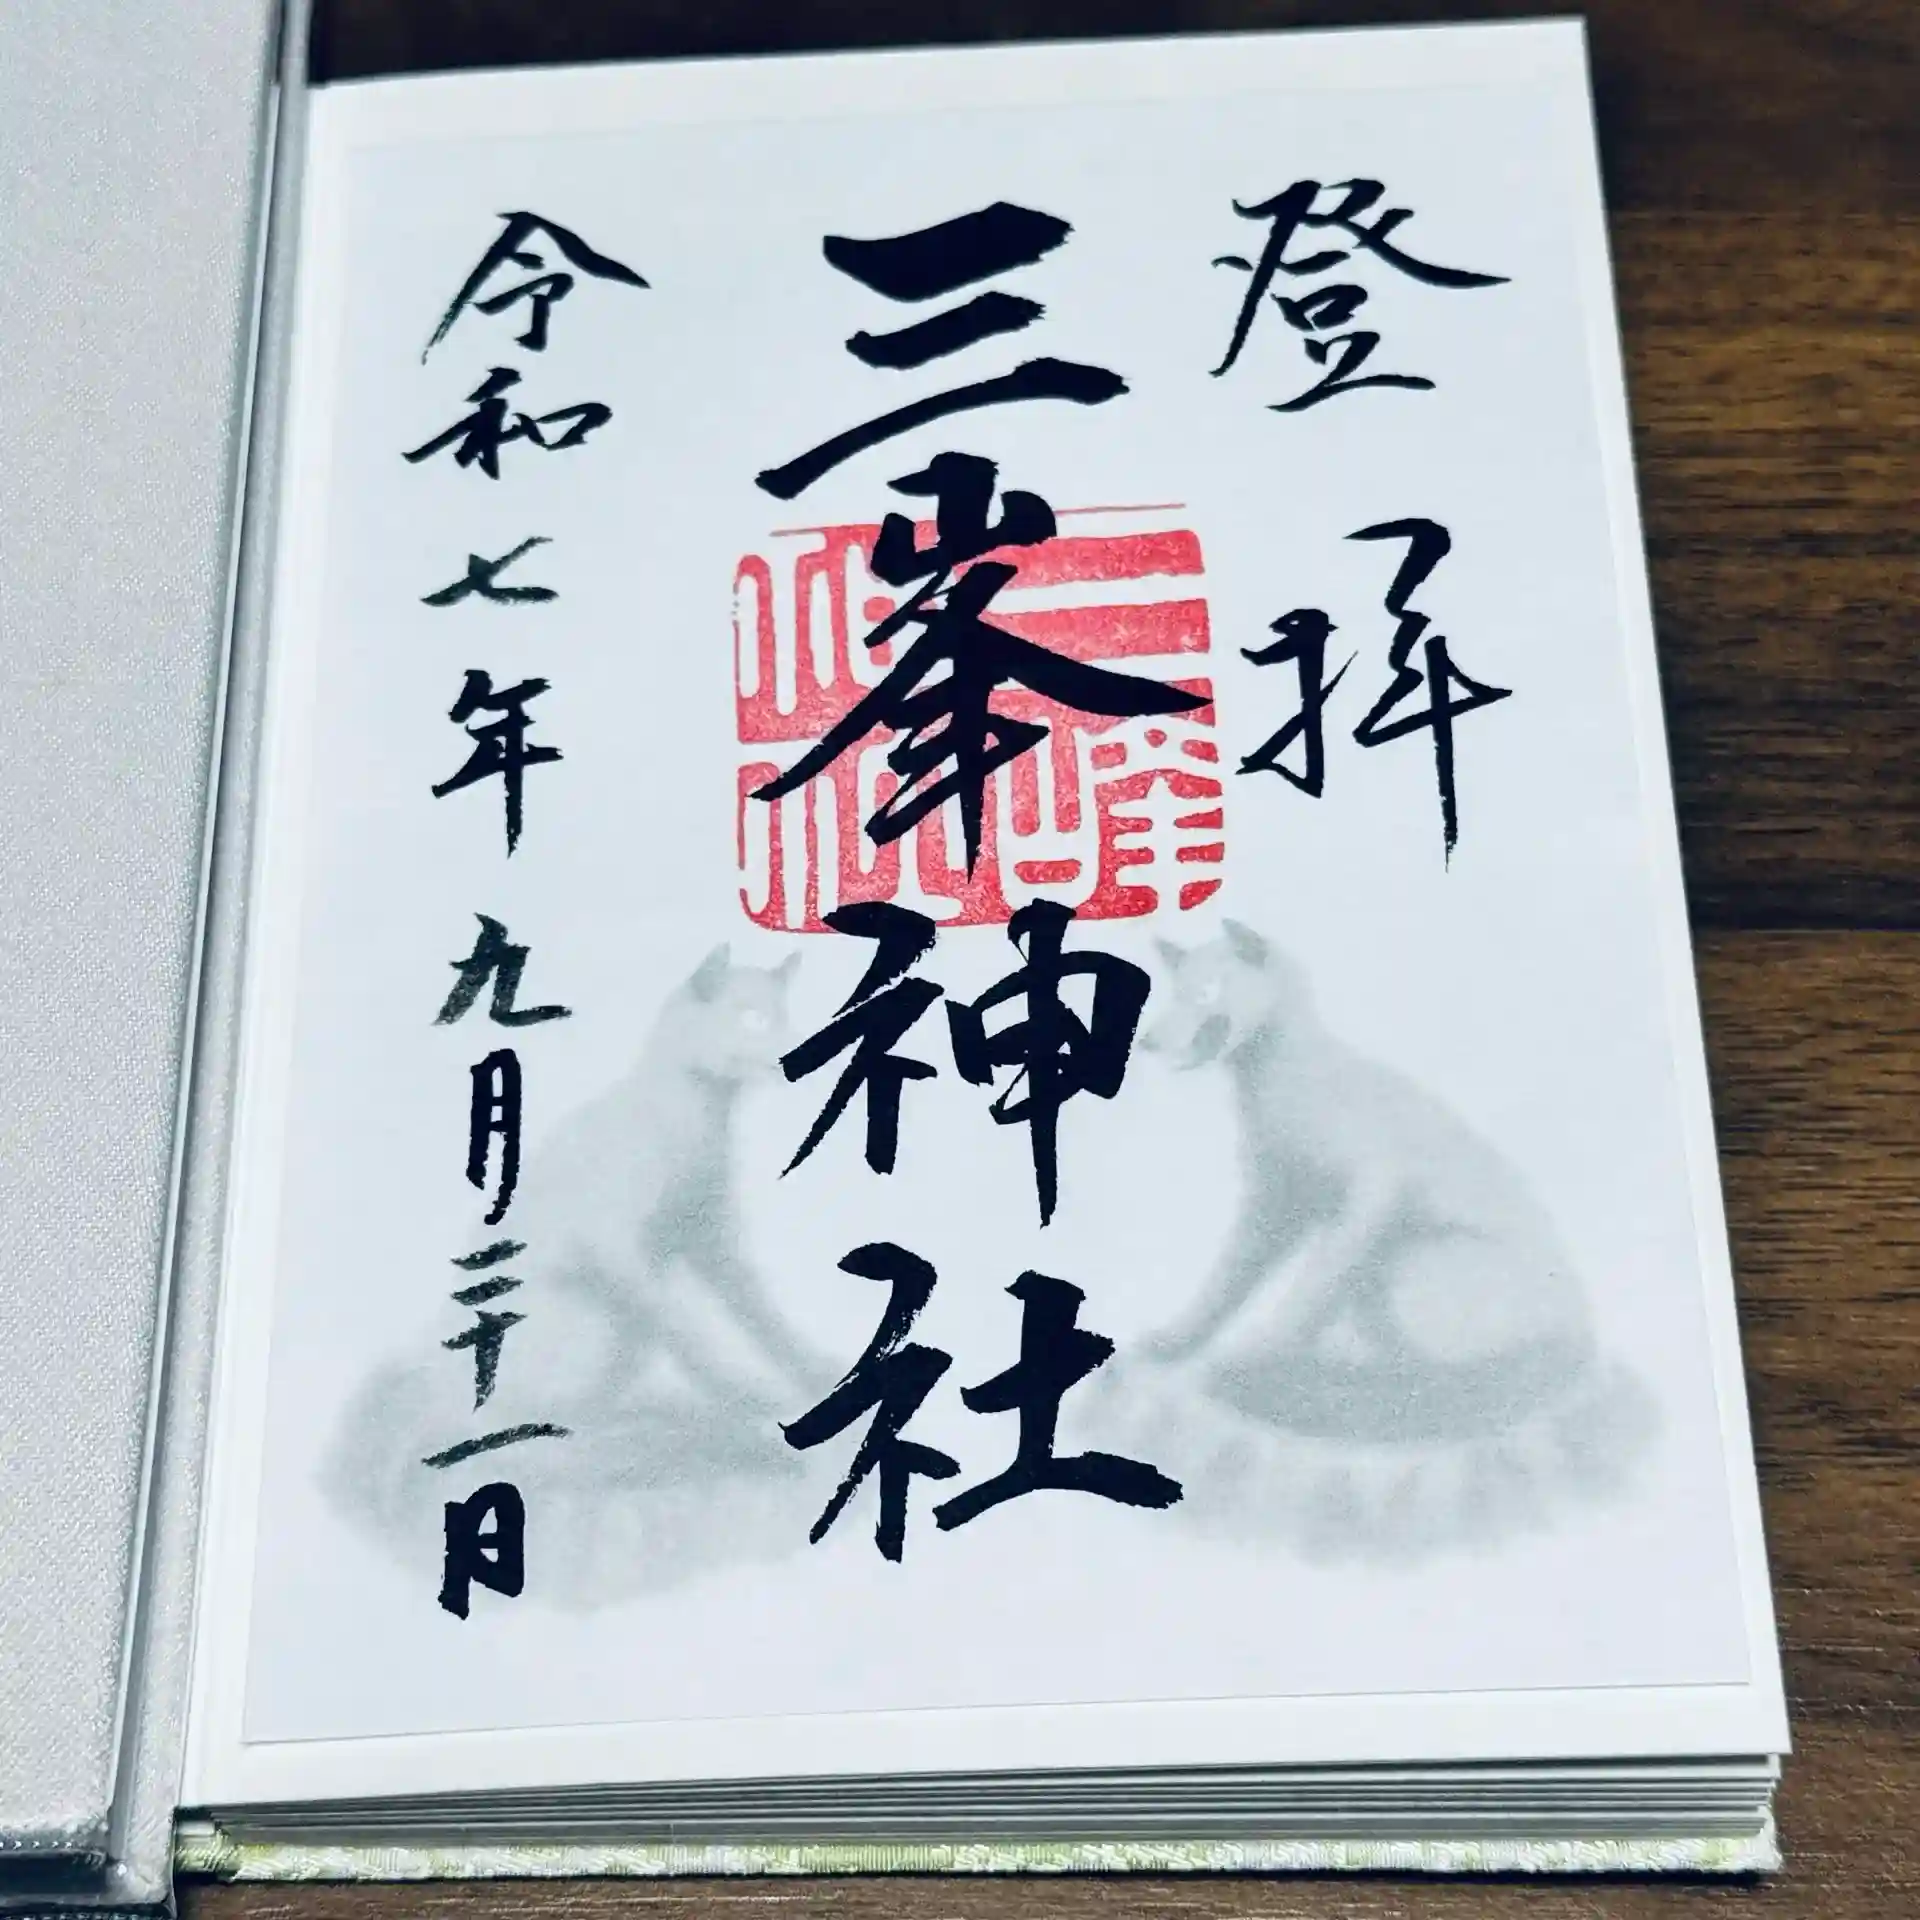 登拝
三峯神社
令和七年九月二十一日